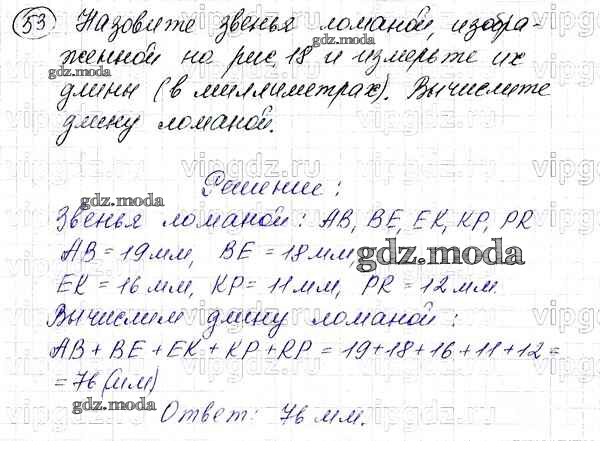 53 Назовите звенья ломаной, изобра-
женной на рис. 18 и измерьте их
длины (в миллиметрах). Вычислите
длину ломаной.
Решение:
Звенья ломаной: AB, BE, EK, KP, PR
AB = 19мм, BE = 18мм,
EK = 16 мм, KP = 11мм, PR = 12мм.
Вычислим длину ломаной:
AB + BE + EK + KP + RP = 19+18+16+11+12 =
= 76 (мм)
Ответ: 76 мм.
gdz.moda
gdz.moda
gdz.moda
gdz.moda
gdz.moda
gdz.moda
gdz.moda
vipgdz.ru